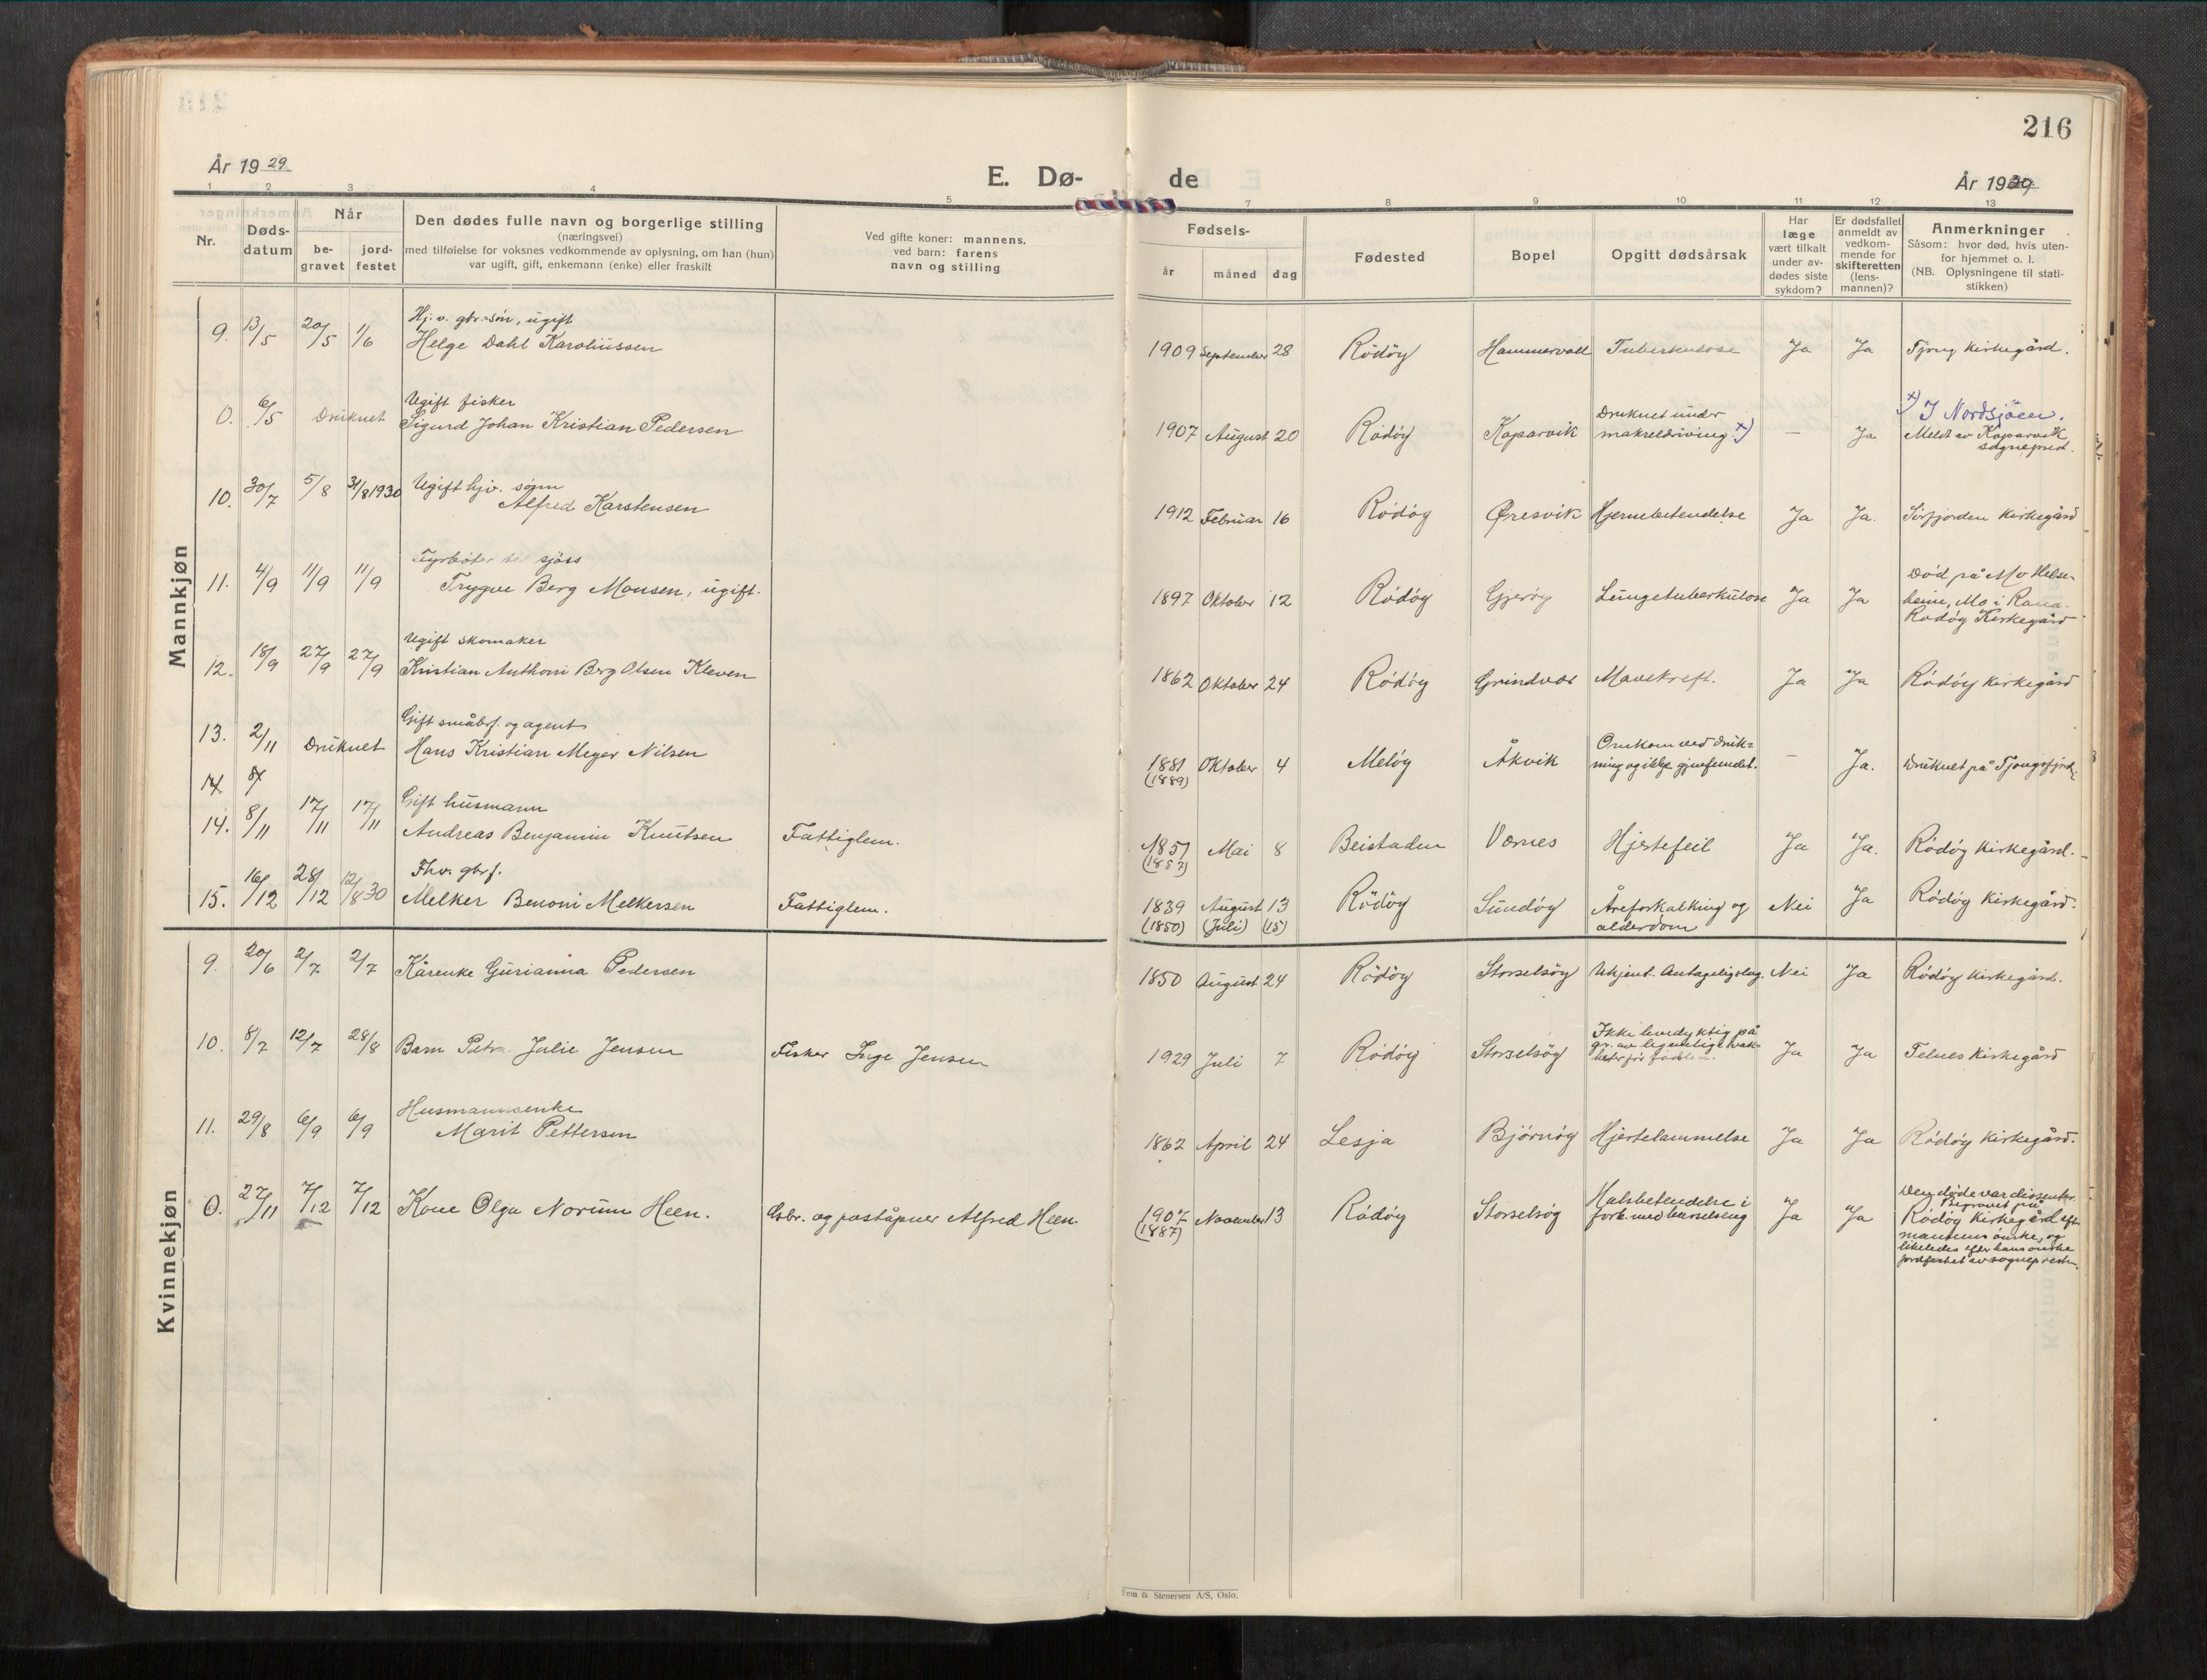 216
År 1929
E. Dø-
de
År 1929
1 2 3 4 5 7 8 9 10 11 12 13
Nr.
Døds-
datum
Når
be-
gravet
jord-
festet
Den dødes fulle navn og borgerlige stilling
(næringsvei)
med tilføielse for voksnes vedkommende av oplysning, om han (hun)
var ugift, gift, enkemann (enke) eller fraskilt
Ved gifte koner: mannens,
ved barn: farens
navn og stilling
Fødsels-
år måned dag
Fødested
Bopel
Opgitt dødsårsak
Har
læge
vært tilkalt
under av-
dødes siste
sykdom?
Er dødsfallet
anmeldt av
vedkom-
mende for
skifteretten
(lens-
mannen)?
Anmerkninger
Såsom: hvor død, hvis uten-
for hjemmet o. l.
(NB. Oplysningene til stati-
stikken)
Mannkjøn
Hj. v. gbr. søn, ugift
9. 13/5 20/5 1/6 Helge Dahl Karoliussen 1909 September 28 Rödöy Hammervoll Tuberkulose Ja Ja Tjong Kirkegård.
Ugift fisker
0. 6/5 Druknet Sigurd Johan Kristian Pedersen 1907 August 20 Rödöy Kopervik
Druknet under
makreldriving. x) — Ja
x) I Nordsjöen.
Meldt av Kopervik
sogneprest.
10. 30/7 5/8 31/8 1930 Ugift hjv. sønn
Alfred Karstensen 1912 Februar 16 Rödöy Øresvik Hjernebetendelse Ja Ja. Sörfjorden Kirkegård
Fyrböter til sjöss
11. 4/9 11/9 11/9 Trygve Berg Monsen, ugift. 1897 Oktober 12 Rödöy Gjeröy Lungetuberkulose Ja Ja
Död på Mo Helse-
heim, Mo i Rana.
Rödöy Kirkegård
Ugift skomaker
12. 18/9 27/9 27/9 Kristian Anthoni Berg Olsen Kleven 1862 Oktober 24 Rödöy Grindvas Mavekreft. Ja Ja Rödöy Kirkegård
Gift småbr. og agent
13. 2/11 Druknet Hans Kristian Meyer Nilsen 1881 (1889) Oktober 4 Melöy Åkvik
Omkom ved druk-
ning og ikke gjenfundet. — Ja. Druknet på Tjongsfjord.
14 8/
Gift husmann
14. 8/11 17/11 17/11 Andreas Benjamin Knutsen Fattiglem. 1851 (1857) Mai 8 Beistaden Værnes Hjertefeil Ja Ja. Rödöy Kirkegård.
Fhv. gbrf.
15. 16/12 28/12 12/8 30 Melker Benoni Melkersen Fattiglem. 1839 (1850) August (Juli) 13 (15) Rödöy Sundöy Åreforkalkning og
alderdom Nei Ja Rödöy Kirkegård.
Kvinnekjøn
9. 20/6 2/7 2/7 Kårenke Gurianna Pedersen 1850 August 24 Rödöy Storselsöy Ukjent. Antagelig slag. Nei Ja Rödöy Kirkegård.
10. 8/7 12/7 28/8 Barn Petra Julie Jensen Fisker Inge Jensen 1929 Juli 7 Rödöy Storselsöy
Ikke levedyktig på
gr. av legemlig svak-
het før födsel. Ja Ja Telnes Kirkegård
Husmannsenke
11. 29/8 6/9 6/9 Marit Pettersen 1862 April 24 Lesja Björnöy Hjertelammelse Ja Ja Rödöy Kirkegård.
0. 27/11 7/12 7/12 Kone Olga Norum Heen. Gbr. og poståpner Alfred Heen. 1907 (1887) November 13 Rödöy Storselsöy
Halsbetendelse i
forb. med barselseng Ja Ja
Den döde var dissenter.
Begravet på
Rödöy Kirkegård eft.
mannens önske, og
likeledes efter hans önske
jordfestet av sogneprest.
Sem & Stenersen A/S, Oslo.